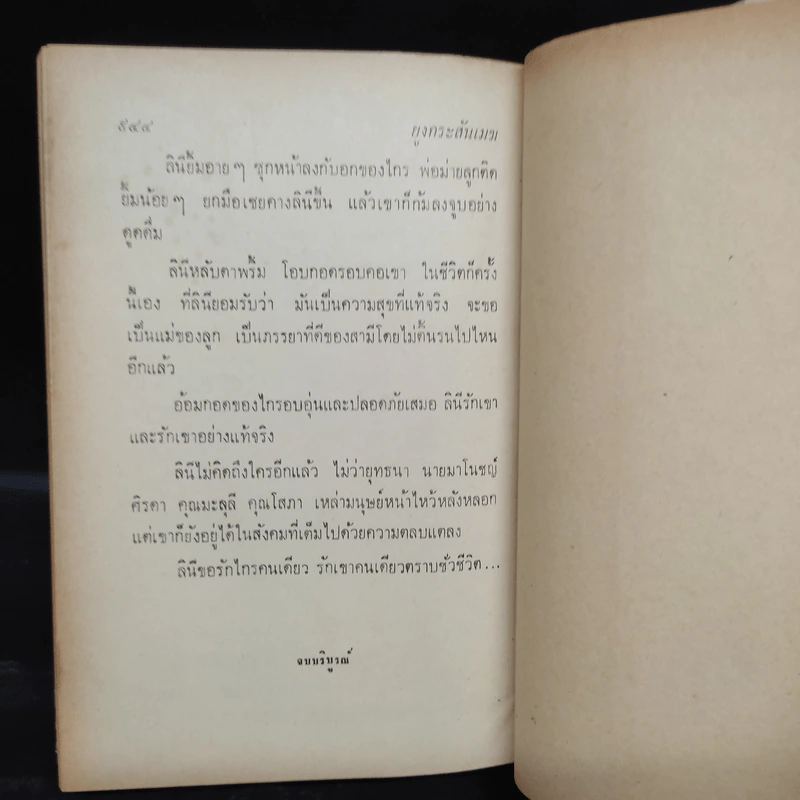 ๙๔๔ ยูงกระสันเมฆ
ลินียิ้มอาย ๆ ซุกหน้าลงกับอกของไกร พ่อม่ายลูกติด
ยิ้มน้อย ๆ ยกมือเชยคางลินีขึ้น แล้วเขาก็ก้มลงจูบอย่าง
ดูดดื่ม
ลินีหลับตาพริ้ม โอบกอดรอบคอเขา ในชีวิตก็ครั้ง
นี้เอง ที่ลินียอมรับว่า มันเป็นความสุขที่แท้จริง จะขอ
เป็นแม่ของลูก เป็นภรรยาที่ดีของสามีโดยไม่ดิ้นรนไปไหน
อีกแล้ว
อ้อมกอดของไกรอบอุ่นและปลอดภัยเสมอ ลินีรักเขา
และรักเขาอย่างแท้จริง
ลินีไม่คิดถึงใครอีกแล้ว ไม่ว่ายุทธนา นายมาโนชญ์
ศิรดา คุณมะลุลี คุณโสภา เหล่ามนุษย์หน้าไหว้หลังหลอก
แต่เขาก็ยังอยู่ได้ในสังคมที่เต็มไปด้วยความตลบแตลง
ลินีขอรักไกรคนเดียว รักเขาคนเดียวตราบชั่วชีวิต...
จบบริบูรณ์